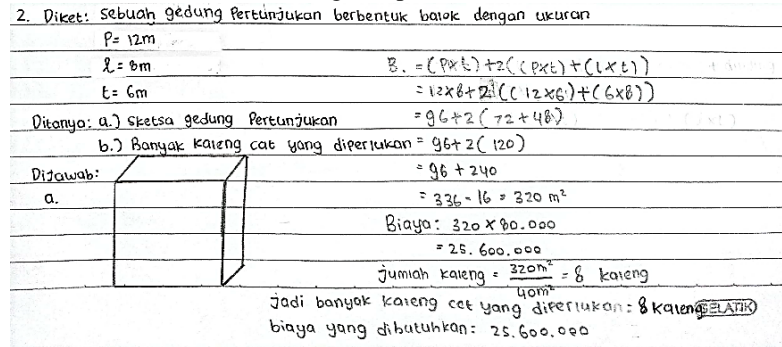 2. Diket: Sebuah gedung Pertunjukan berbentuk balok dengan ukuran
P= 12m
l = 8m
t= 6m
Ditanya: a.) Sketsa gedung Pertunjukan
b.) Banyak kaleng cat yang diperlukan
Dijawab:
a.
B. =(Pxl)+2((Pxt)+(lxt))
= 12x8+2((12x6)+(6x8))
=96+2(72+48)
= 96+2(120)
= 96 + 240
= 336 - 16 = 320 m²
Biaya: 320 x 80.000
= 25.600.000
jumlah kaleng = 320m²/40m² = 8 kaleng
jadi banyak kaleng cet yang diperlukan: 8 kaleng
biaya yang dibutuhkan: 25.600.000